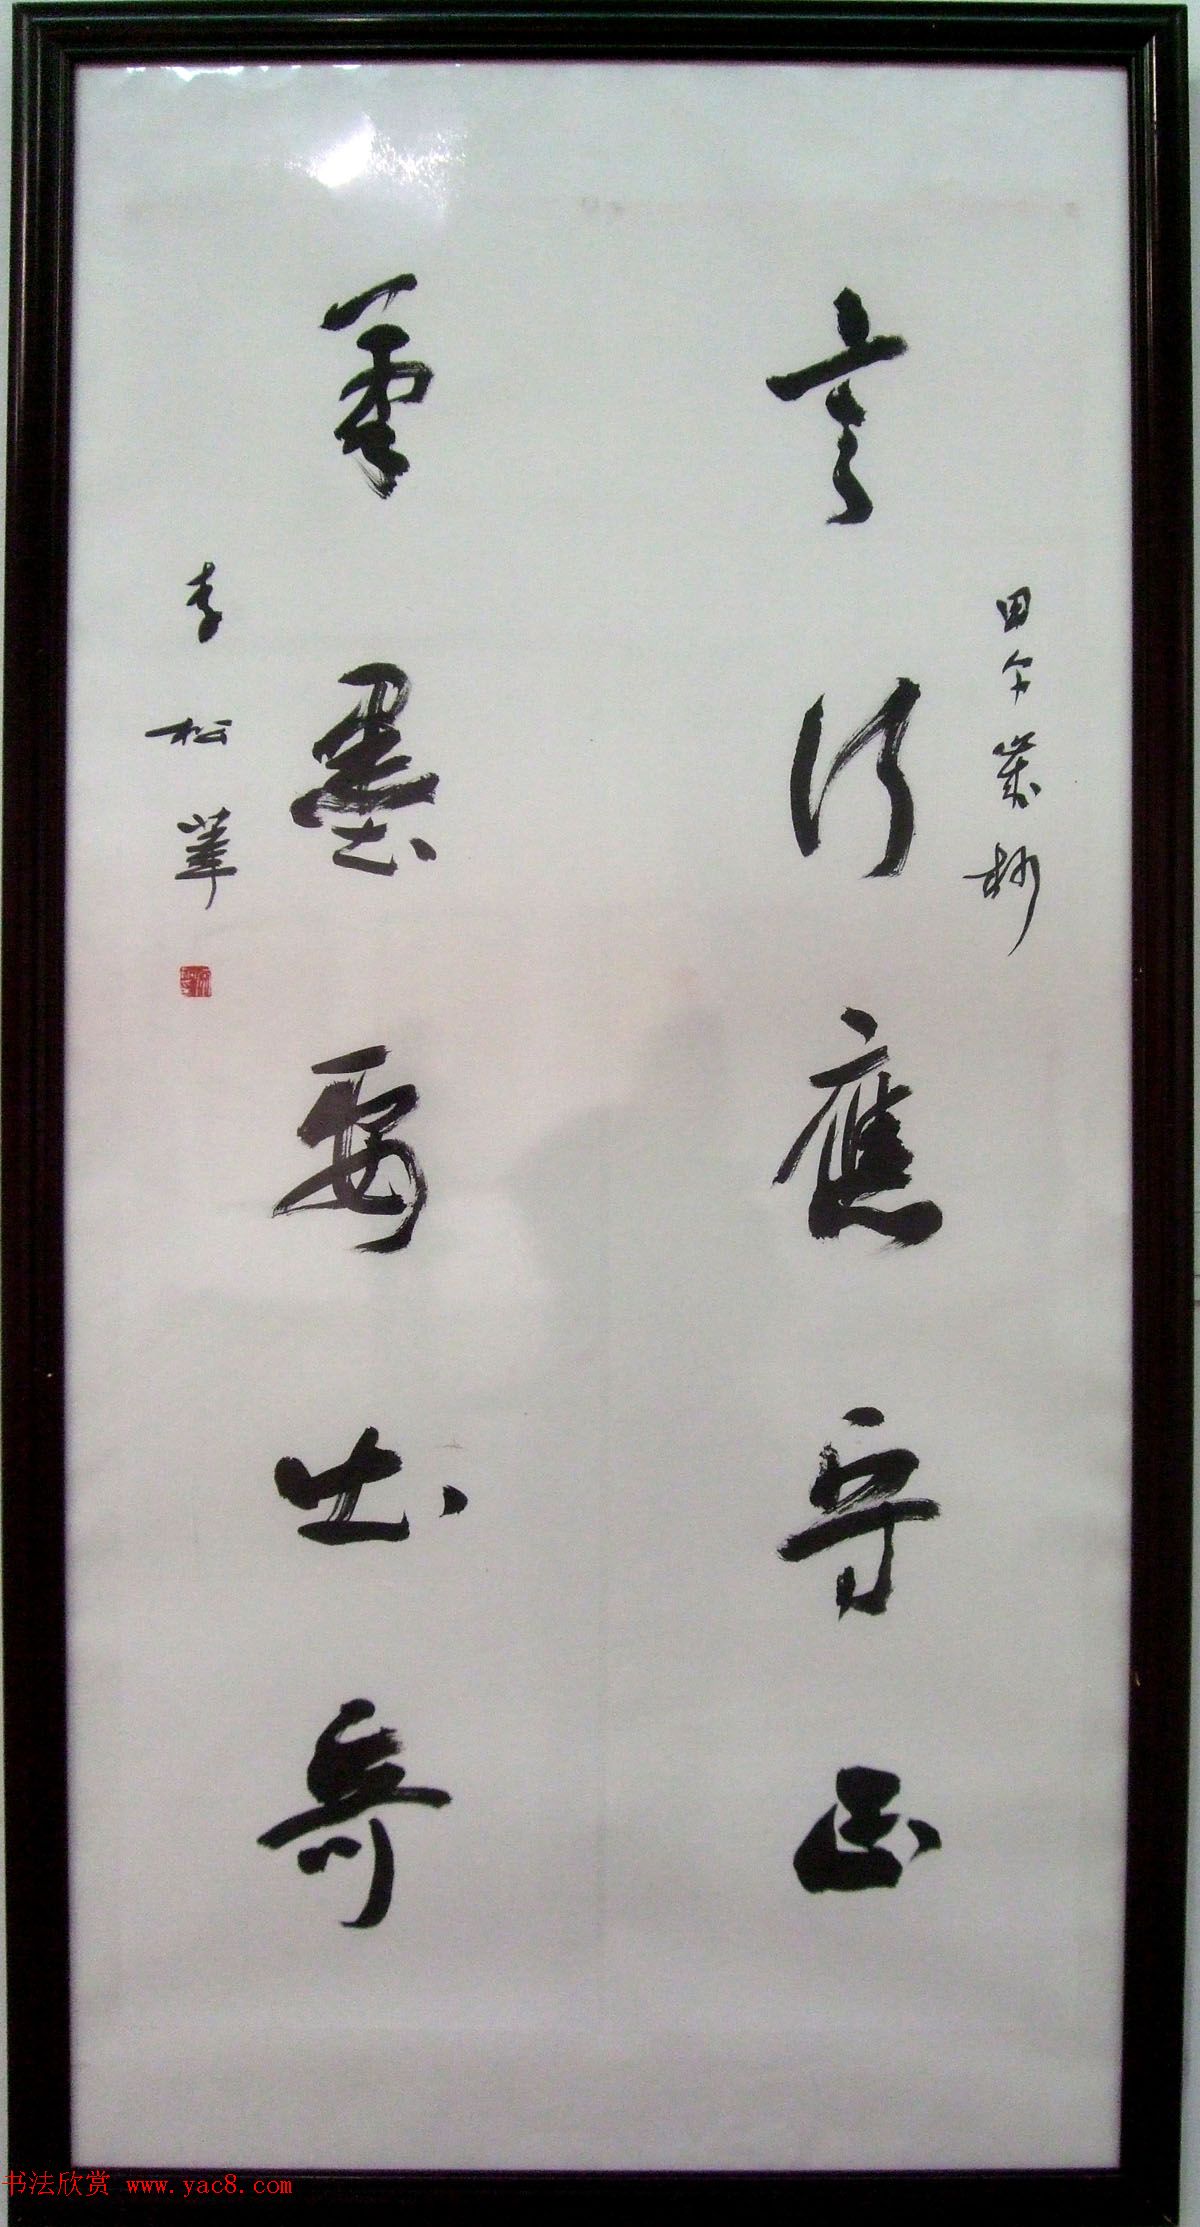 言行應守正
筆墨要出奇
甲午歲杪
李松華
书法欣赏 www.yac8.com